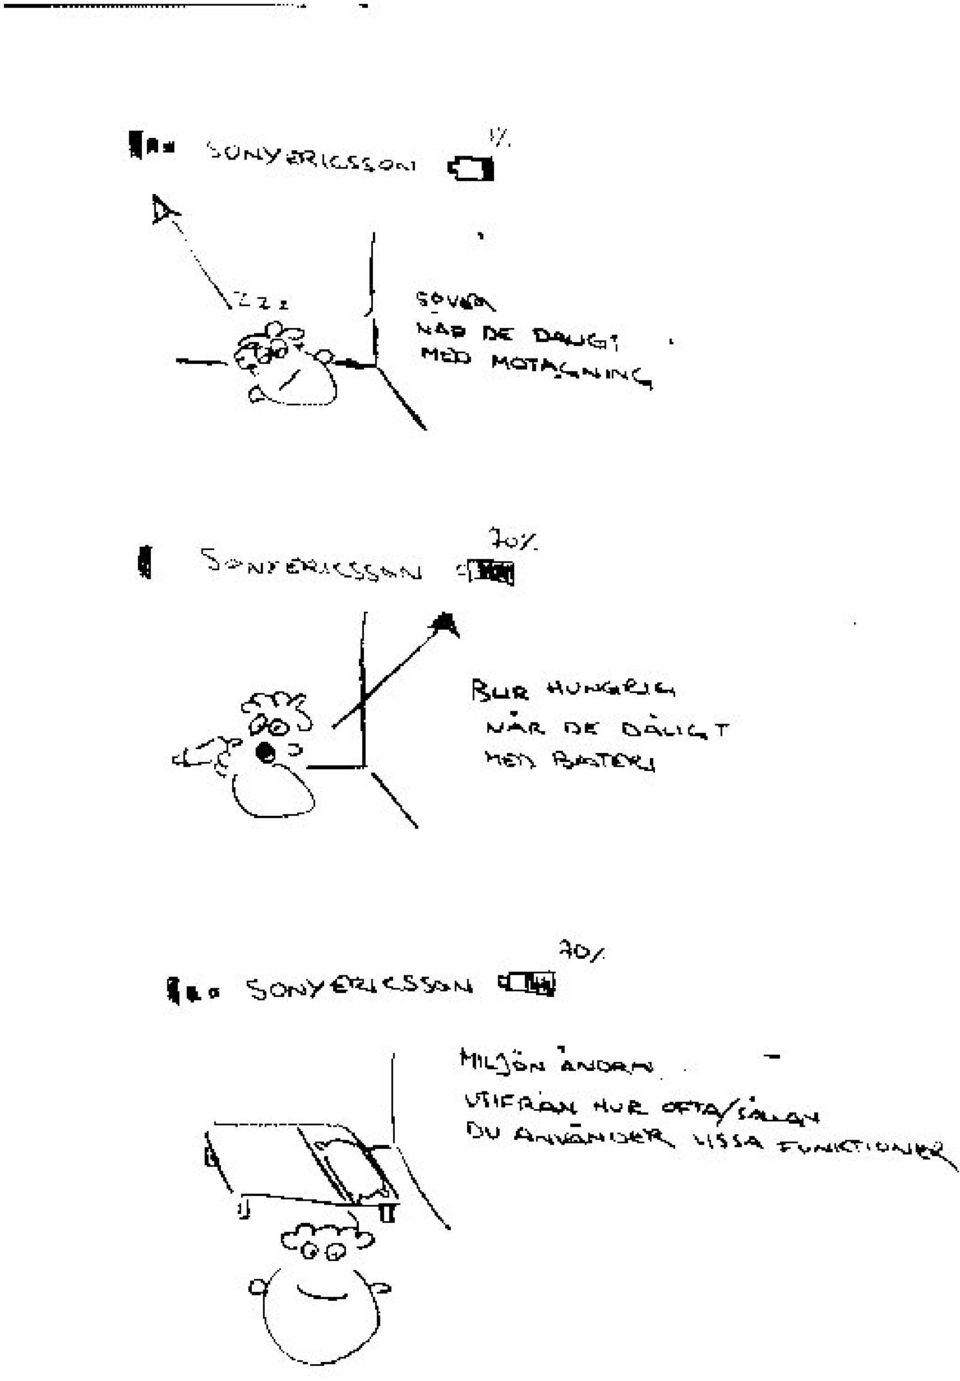 1%
SONYERICSSON
Zzz
SOVER
NÄR DE DÅLIGT
MED MOTAGNING
70%
SONYERICSSON
BLIR HUNGRIG
NÄR DE DÅLIGT
MED BATERI
70%
SONYERICSSON
MILJÖN ÄNDRAS
UTIFRÅN HUR OFTA/SÄLLAN
DU ANVÄNDER VISSA FUNKTIONER